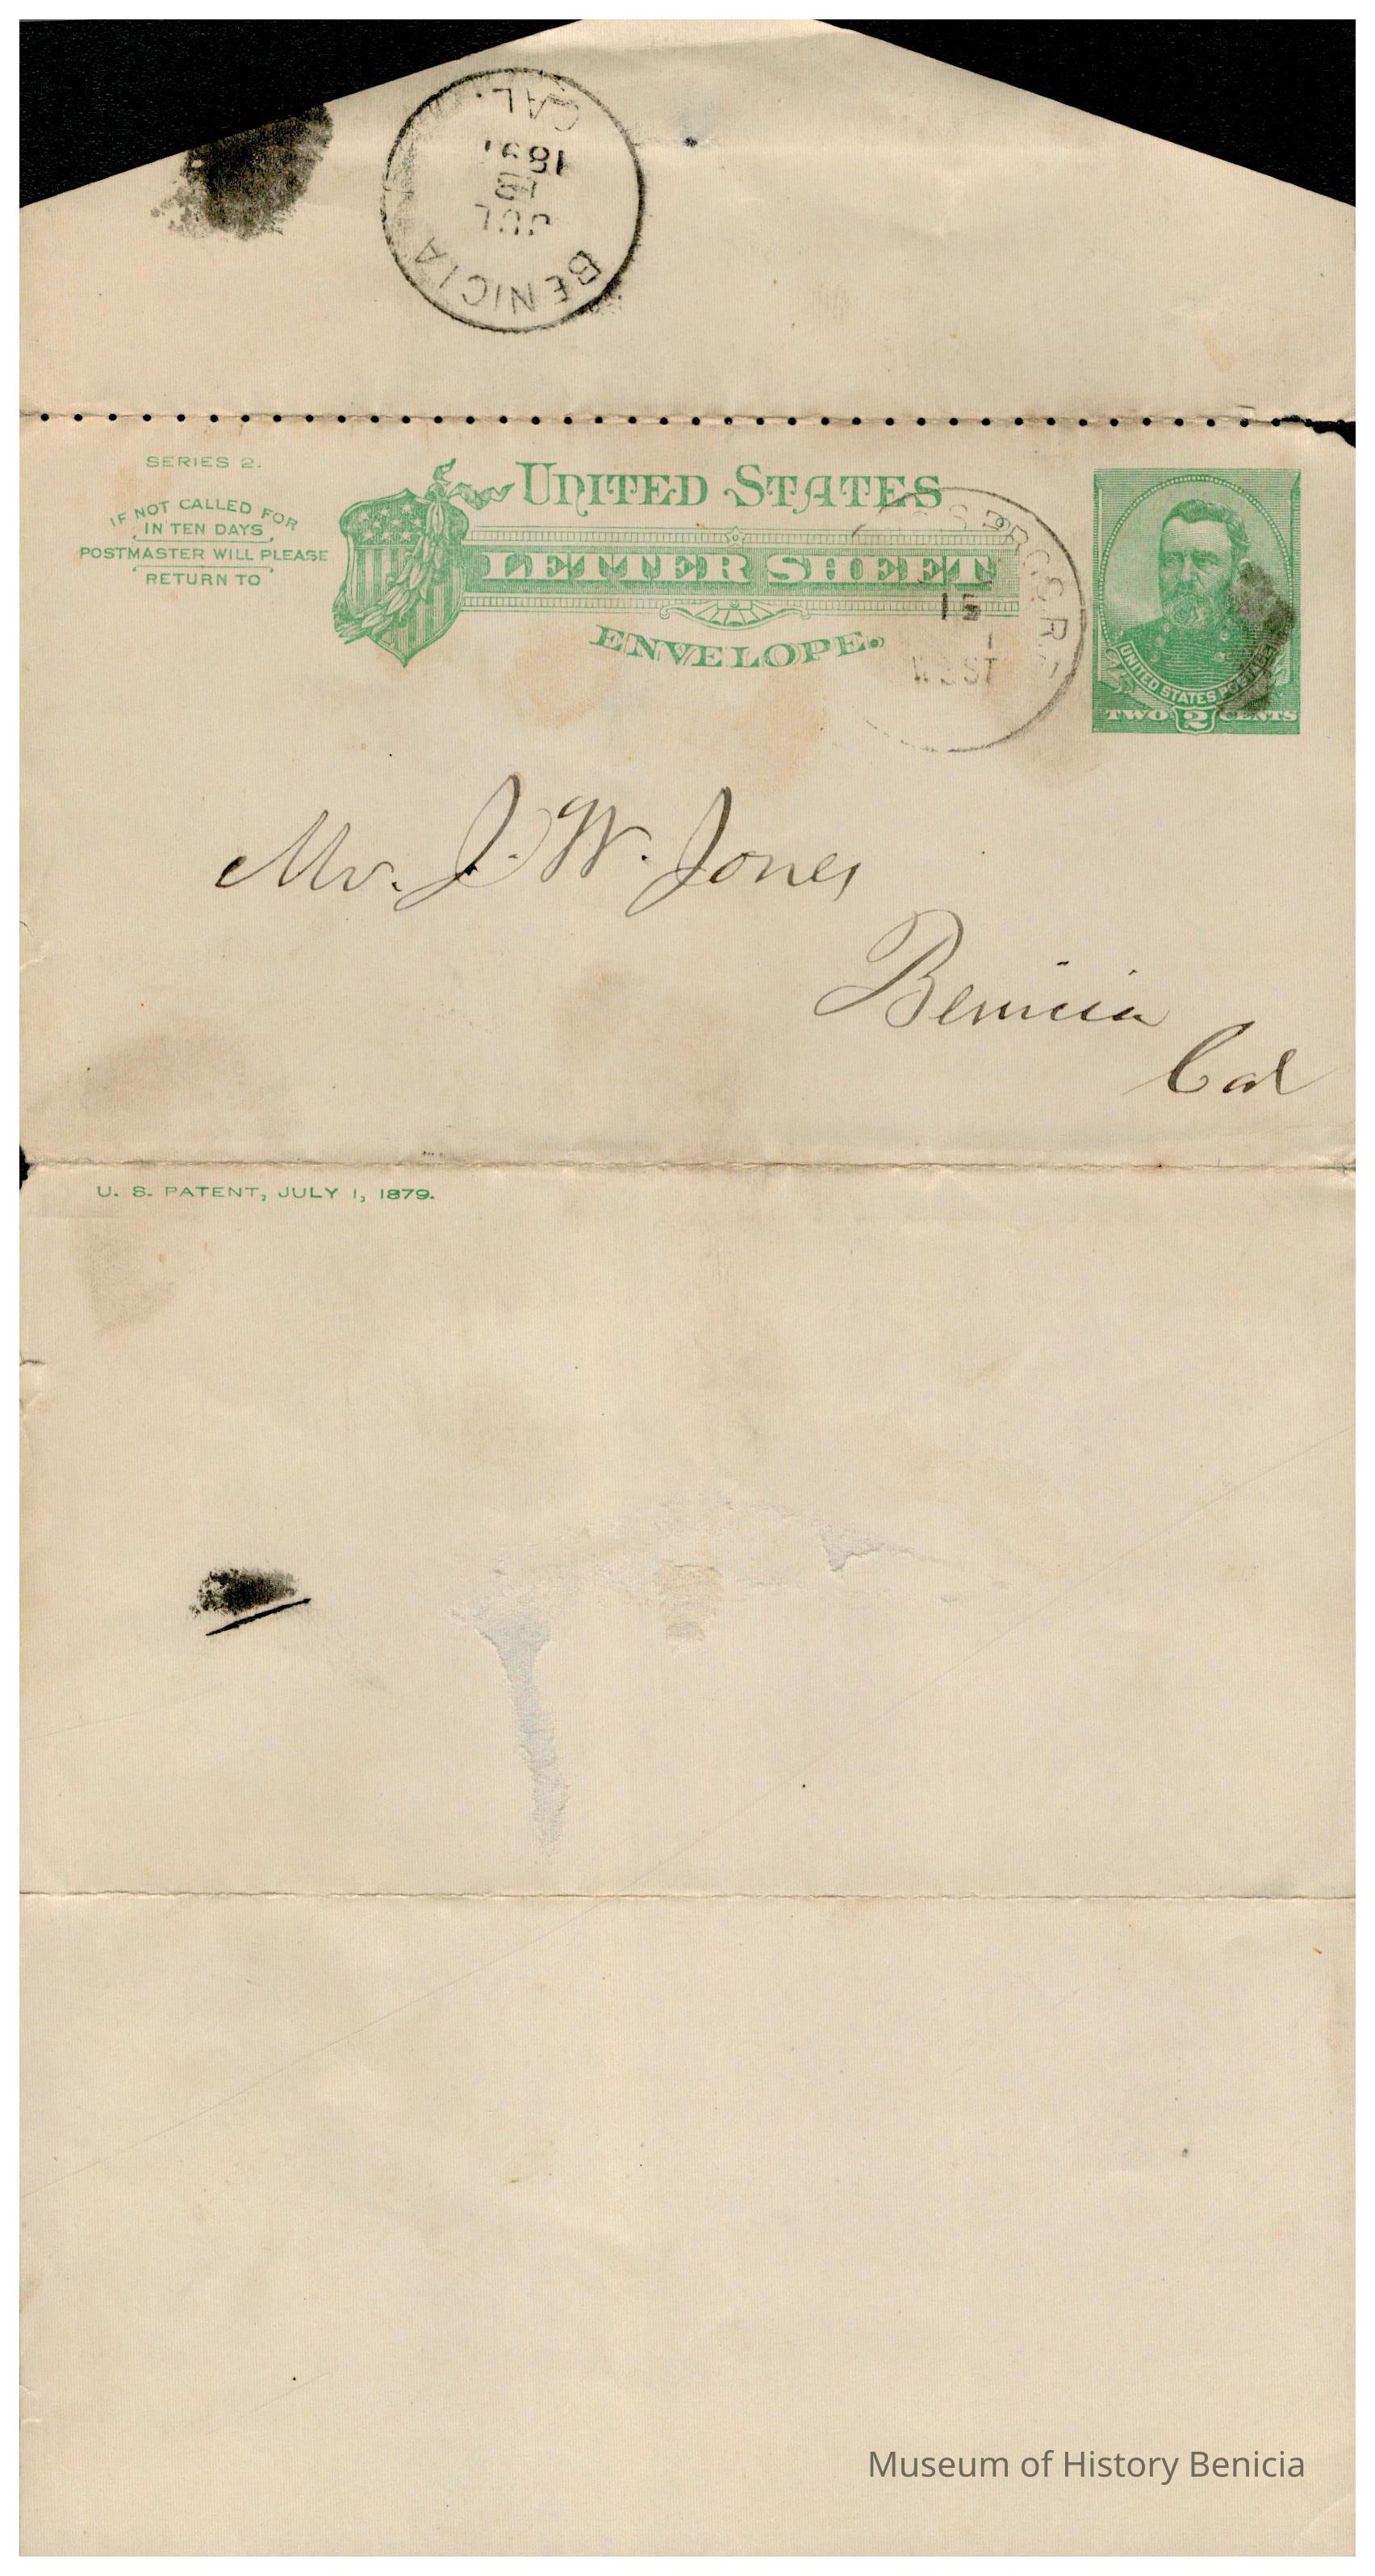 BENICIA
JUL
18
CAL.
SERIES 2.
IF NOT CALLED FOR
IN TEN DAYS
POSTMASTER WILL PLEASE
RETURN TO
UNITED STATES
LETTER SHEET
ENVELOPE.
15
WEST
UNITED STATES POSTAGE
TWO 2 CENTS
Mr. J. W. Jones
Benicia
Cal
U. S. PATENT, JULY 1, 1879.
Museum of History Benicia